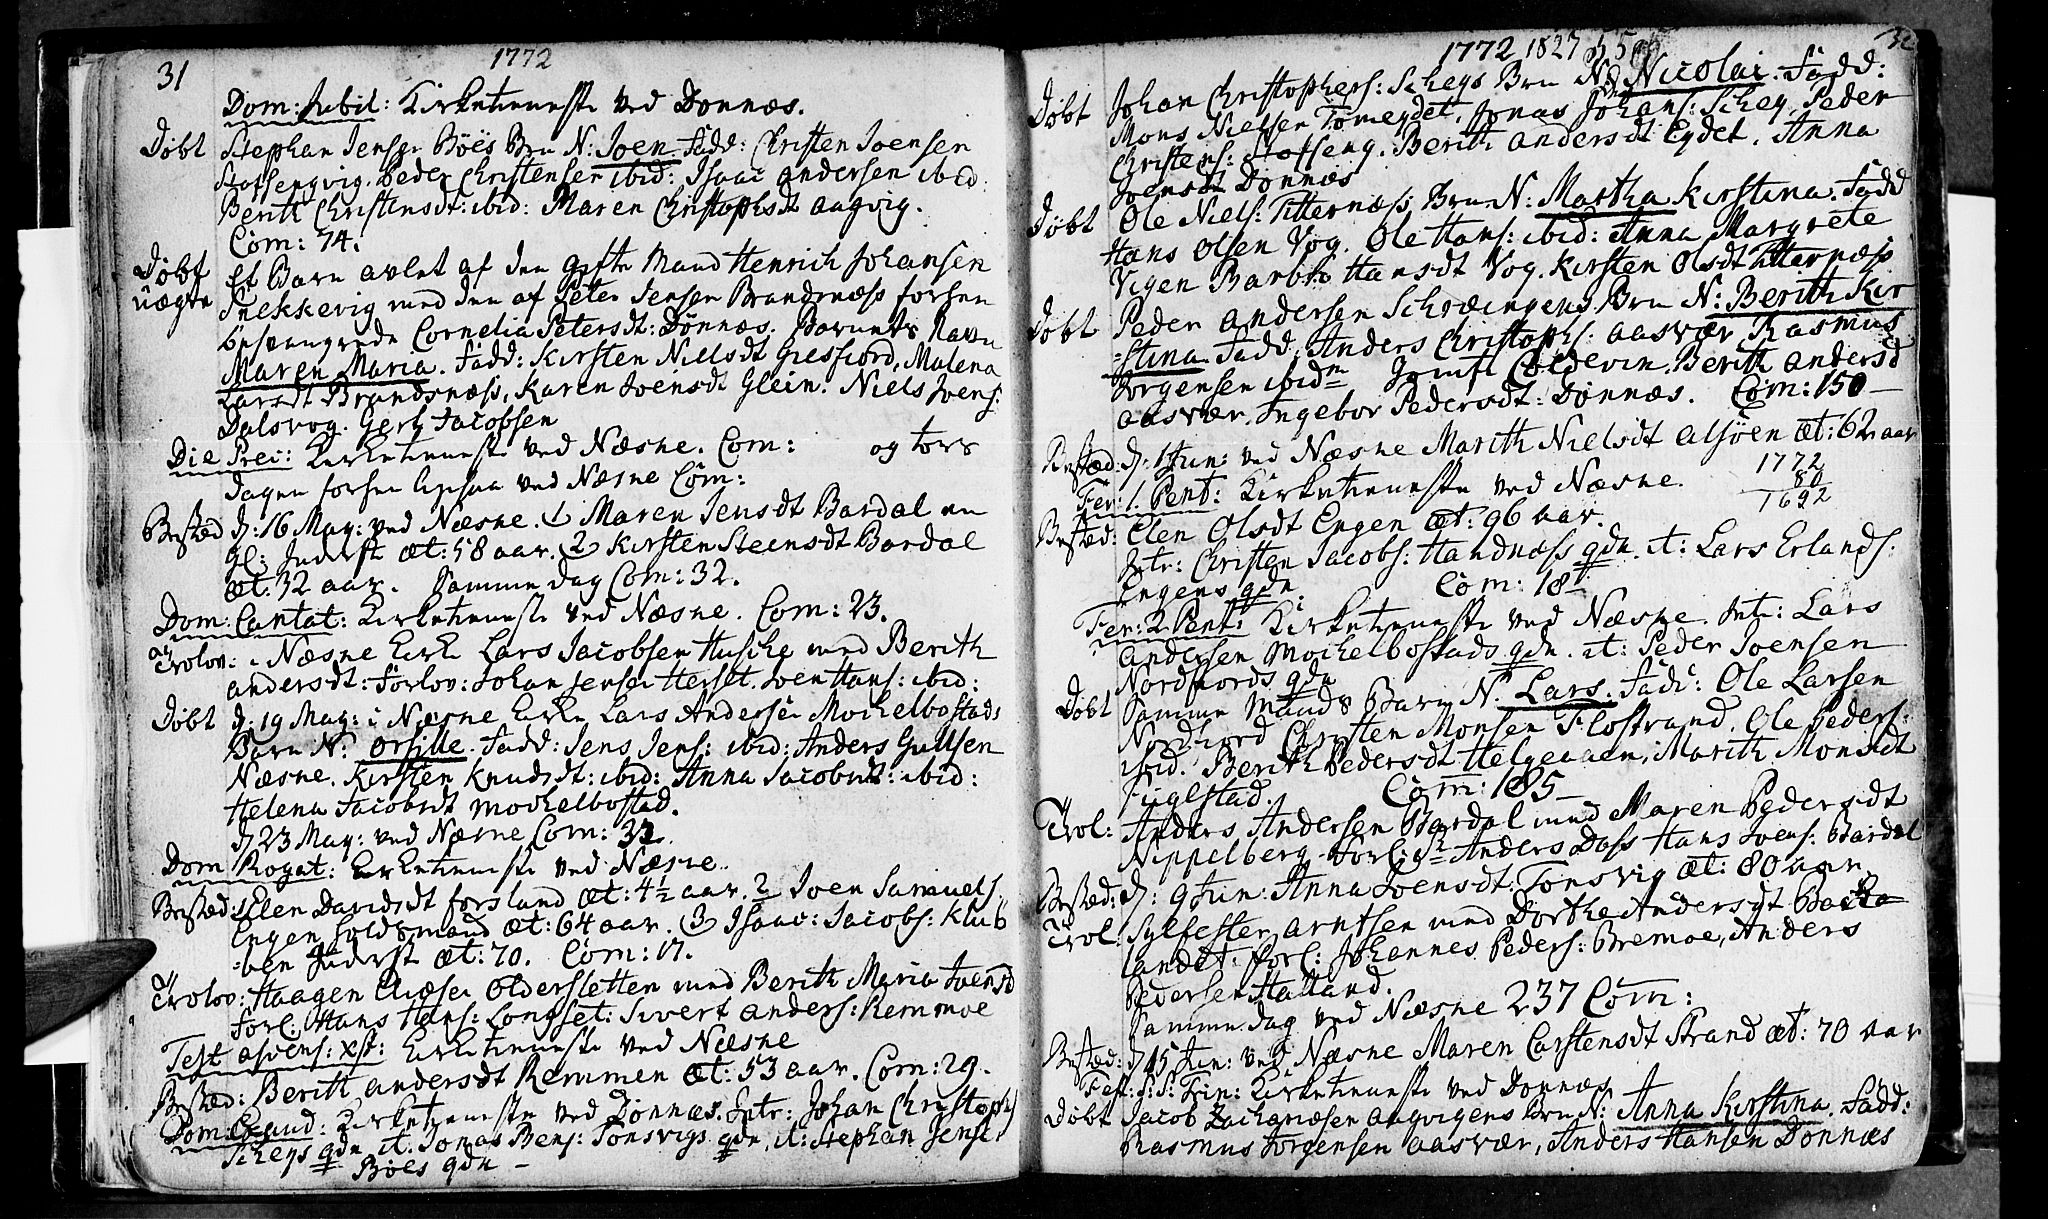 31
1772
Dom: Jubil: Kirketienniste ved Dønnæs.
Døbt Stephan Jenser Böes Brn N: Joen Fadd: Christen Joensen
Stofsengvig. Peder Christenser ibid: Isaac Andersen ibid:
Berith Christensdt: ibid: Maren Christophsdt Aagvig.
Com: 74.
Døbt Et Barn avlet af den gifte Mand Henrich Johansen
uægte Snekkevig med den af Peter Jenser Brandsnæss forhen
besvangrede Cornelia Petersdt: Dønnæs. Barnets Navn
Maren Maria. Fadd: Kirsten Nielsdt Giesfiord, Malena
Larsdt Brandsnæss, Karen Joensdt Glein. Niels Joens:
Dalsvog. Gert Jacobsen
Die Prec: Kirketienniste ved Næsne. Com: og tors
dagen forhen ligesaa ved Næsne Com:
Bested d: 16 May: ved Næsne. 1 Maren Jensdt Bardal en
gl: Inderst æt: 58 aar. 2 Kirsten Steensdt Bardal
æt: 32 aar. Samme dag Com: 32.
Dom: Cantat: Kirketienniste ved Næsne. Com: 23.
Trolov: i Næsne Kirke Lars Jacobsen Husche med Berith
Andersdt: Forlov: Johan Jenser Herset. Joen Hans: ibid:
Døbt d: 19 May: i Næsne Kirke Lars Andersen Mochelbostads
Barn N: Orsille. Fadd: Jens Jens: ibid: Anders Gullsen
Næsne. Kirsten Knudsdt: ibid: Anna Jacobsdt: ibid:
Helena Jacobsdt Mochelbostad.
d 23 May: ved Næsne Com: 32.
Dom Rogat: Kirketienniste ved Næsne.
Bested: 1 Elen Davidsdt Forsland æt: 4½ aar. 2 Joen Samuels:
Engen Foldsmand æt: 64 aar. 3 Isaac: Jacobs: Klub
-ben Inderst æt: 70. Com: 17.
Trolov: Haagen Eliæsen Oldersletten med Berith Maria Joensd
Forl: Hans Hans: Longset: Sivert Anders: Remmoe
Fest Ascens: Xsti: Kirketienniste ved Næsne
Bested: Berith Andersdt Remmen æt: 53 aar. Com: 29.
Dom: Exaud: Kirketienniste ved Dønnæs. Intr: Johan Christophs
Scheys qdn it. Jonas Bens: Tonsvigs qdn, it: Stephan Jenser
Böes qdn
1772 1827 55
32
Døbt Johan Christophers: Scheys Brn N: Nicolai. Fadd:
Mons Nielsen Tomeydet. Jonas Johans: Schey. Peder
Christens: Stofseng. Berith Andersdt Eydet. Anna
Joensdt Dønnæs
Døbt Ole Niels: Titternæss Brn N: Martha Kirstina. Fadd
Hans Olsen Vog. Ole Hans: ibid: Anna Margrete
Vigen Barbro Hansdt Vog. Kirsten Olsdt Titternæss
Døbt Peder Andersen Schroeingens Brn N: Berith Kir
-stina Fadd, Anders Christophs: Aasvær, Rasmus
Jorgensen ibidm Jomfr Coldevin. Berith Andersd
Aasvær. Ingebor Pedersdt: Dønnæs. Com: 150 —
Bested: d: 1 Jun: ved Næsne Marith Nielsdt Alsöen æt: 62 aar
Fer: 1. Pent: Kirketienniste ved Næsne.
1772
80
1692
Bested: Elen Olsdt Engen æt: 96 aar.
Intr: Christen Jacobs: Handnæss qdn. it: Lars Erlands:
Engens qdn. Com: 18
Fer: 2 Pent: Kirketienniste ved Næsne. Intr: Lars
Andersen Mochelbostads qdn. it: Peder Joensen
Nordfiords qdn
Døbt Samme Mands Barn N. Lars. Fadd: Ole Larsen
Nordfiord Christen Monsen Flostrand. Ole Peders:
ibid. Berith Pedersdt Helgeaaen, Marith Monsdt
Fuglstad. Com: 185 —
Trol: Anders Andersen Bardal med Maren Pedersdt
Nippelberg Forl: Sr Anders Dass Hans Joens: Bardal
Bested: d: 9 Jun: Anna Joensdt: Tonsvig æt: 80 aar
Trol: Sylfester Arntsen med Dorthe Andersdt Backa
landet. Forl: Johannes Peders: Bremoe, Anders
Pedersen Hatland.
Samme dag ved Næsne 237 Com:
Bested: d 15 Jun: ved Næsne Maren Carstensdt Strand æt: 70 aar
Fest: S: S: Trin: Kirketienniste ved Dønnæs
Døbt Jacob Zachariæsen Aagvigens Brn N: Anna Kirstina. Fadd:
Rasmus Jorgensen Aasvær, Anders Hansen Dønnæs